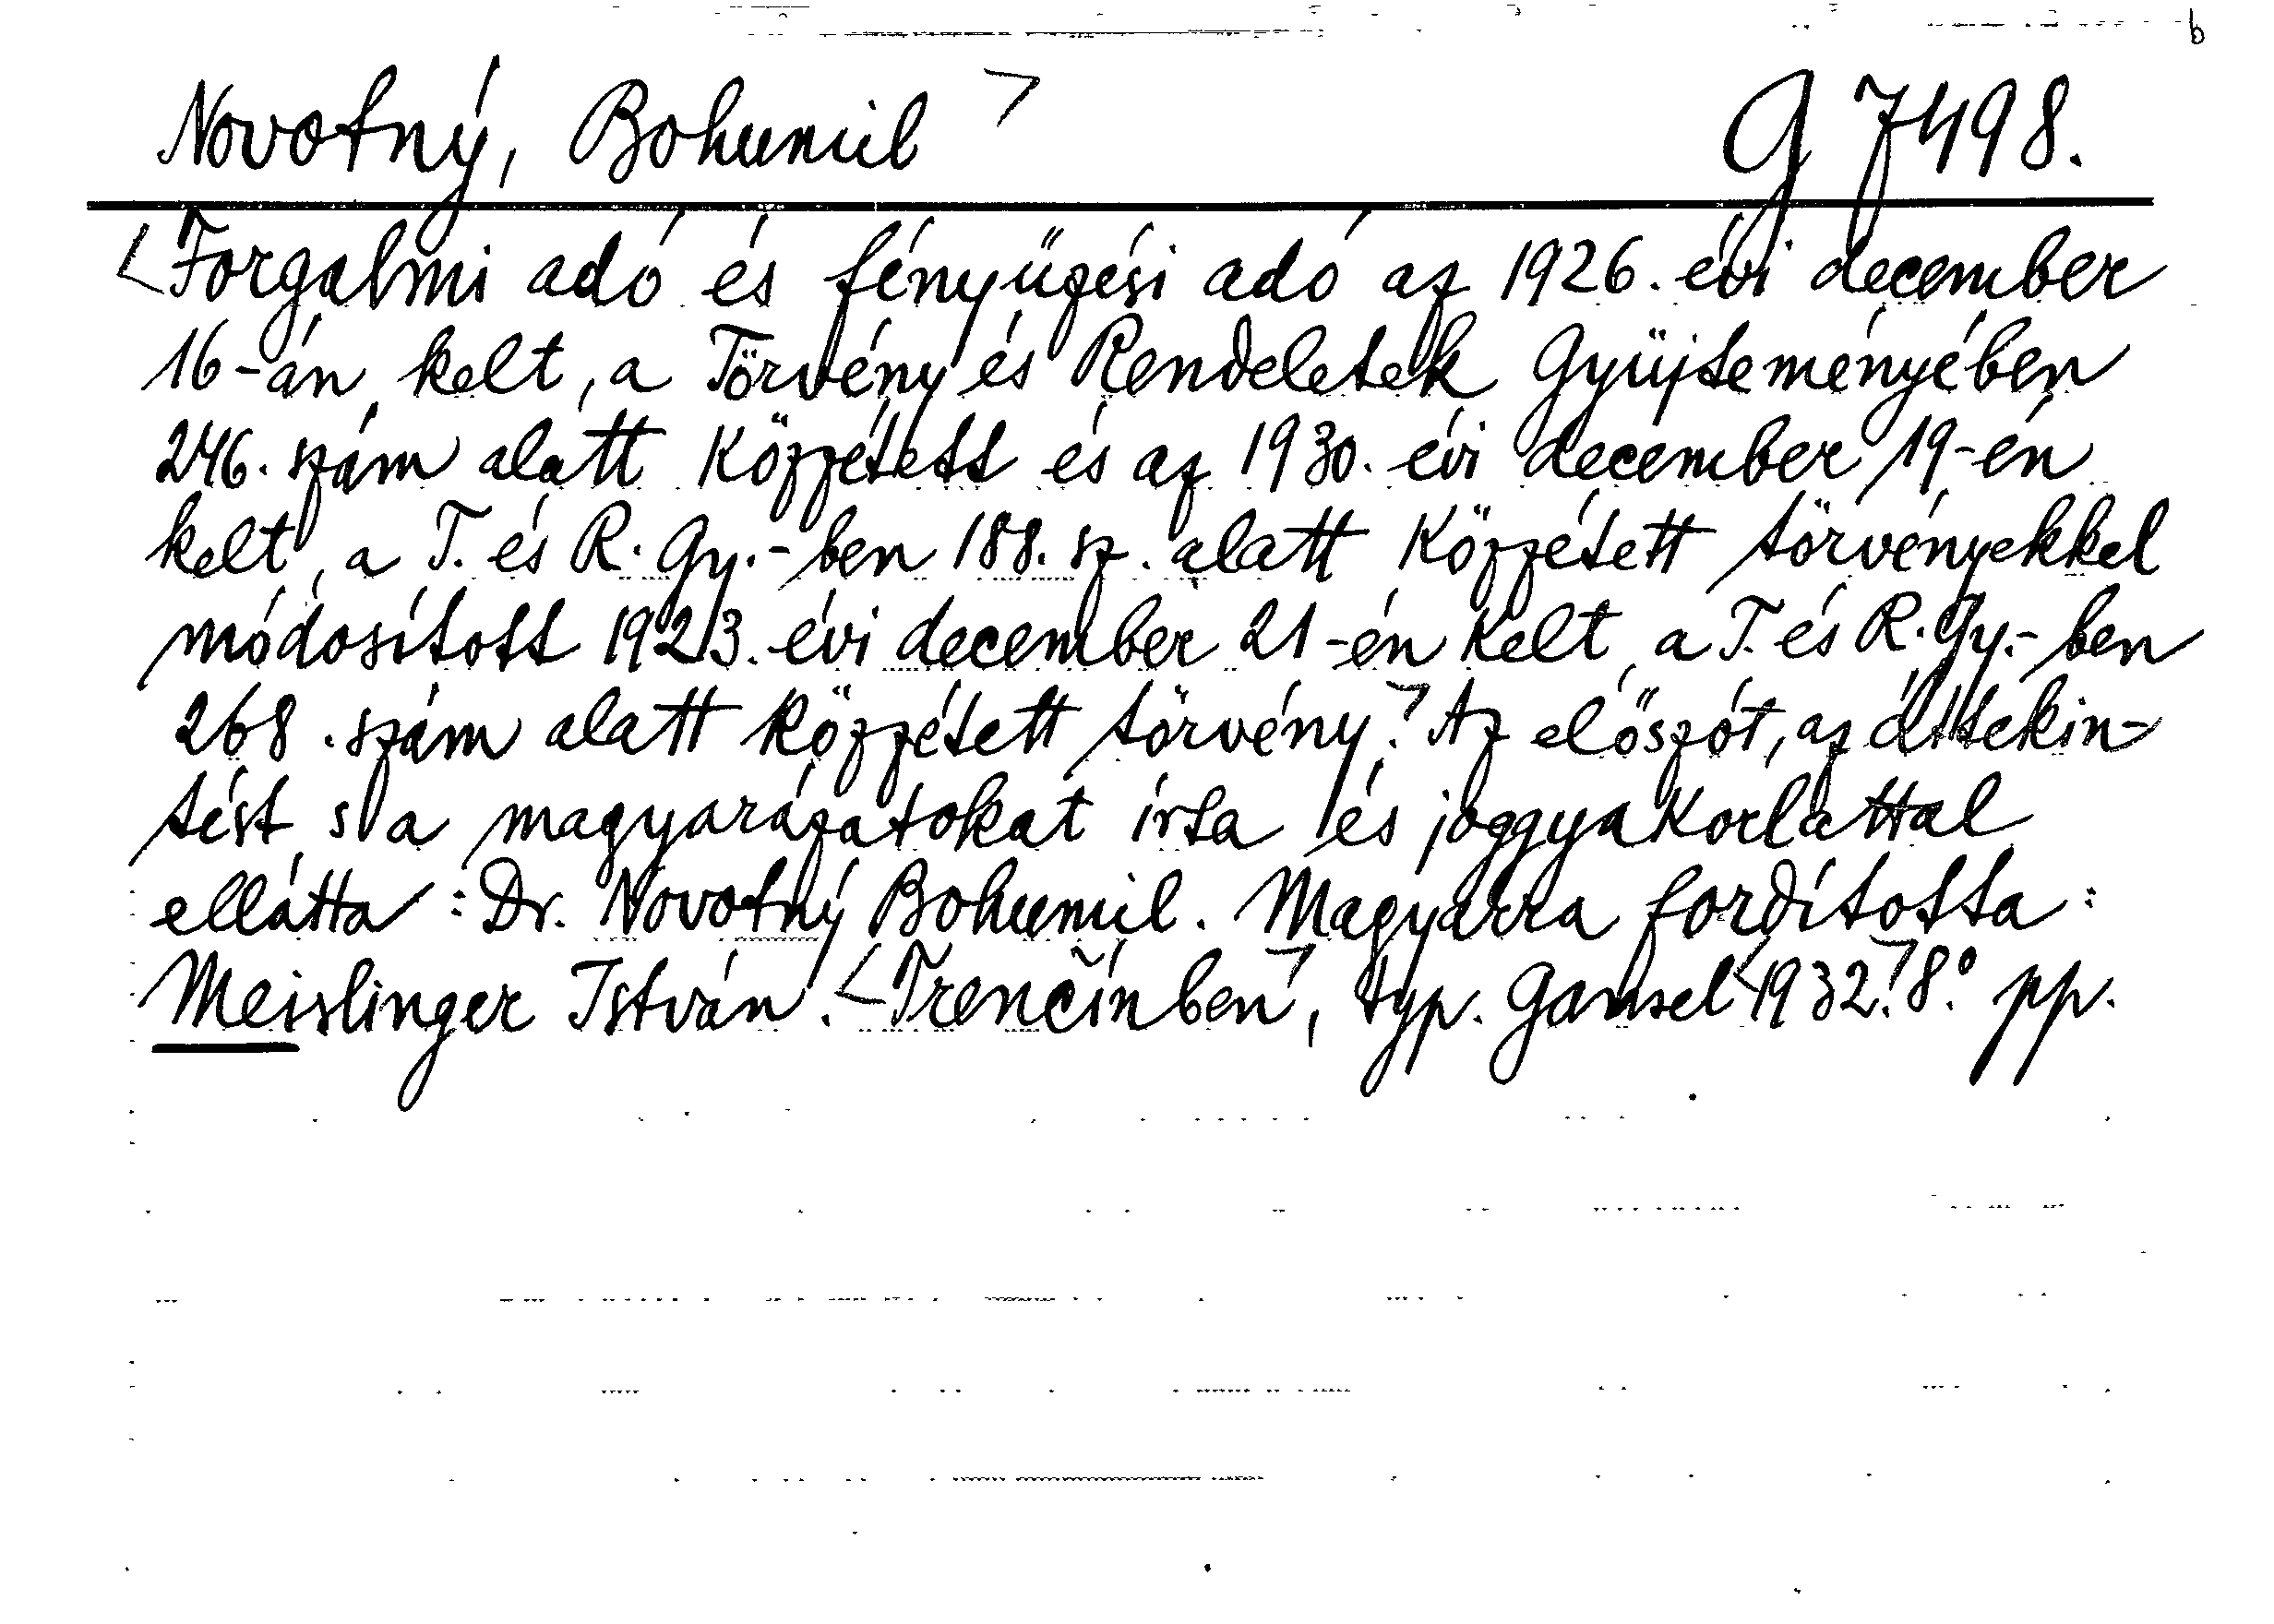 b
Novotný, Bohumil ¬ G 7498.
<Forgalmi adó és fényűzési adó az 1926. évi december
16-án kelt, a Törvény és Rendeletek Gyűjteményében
246. szám alatt közzétett és az 1930. évi december 19-én
kelt, a T. és R. Gy.-ben 188. sz. alatt közzétett törvényekkel
módosított 1923. évi december 21-én kelt, a T. és R. Gy.-ben
268. szám alatt közzétett törvény.¬ Az előszót, az áttekin-
tést s a magyarázatokat írta és joggyakorlattal
ellátta: Dr. Novotný Bohumil. Magyarra fordította:
Meislinger István. <Trenčínben¬, typ. Gansel <1932.¬ 8.° pp.